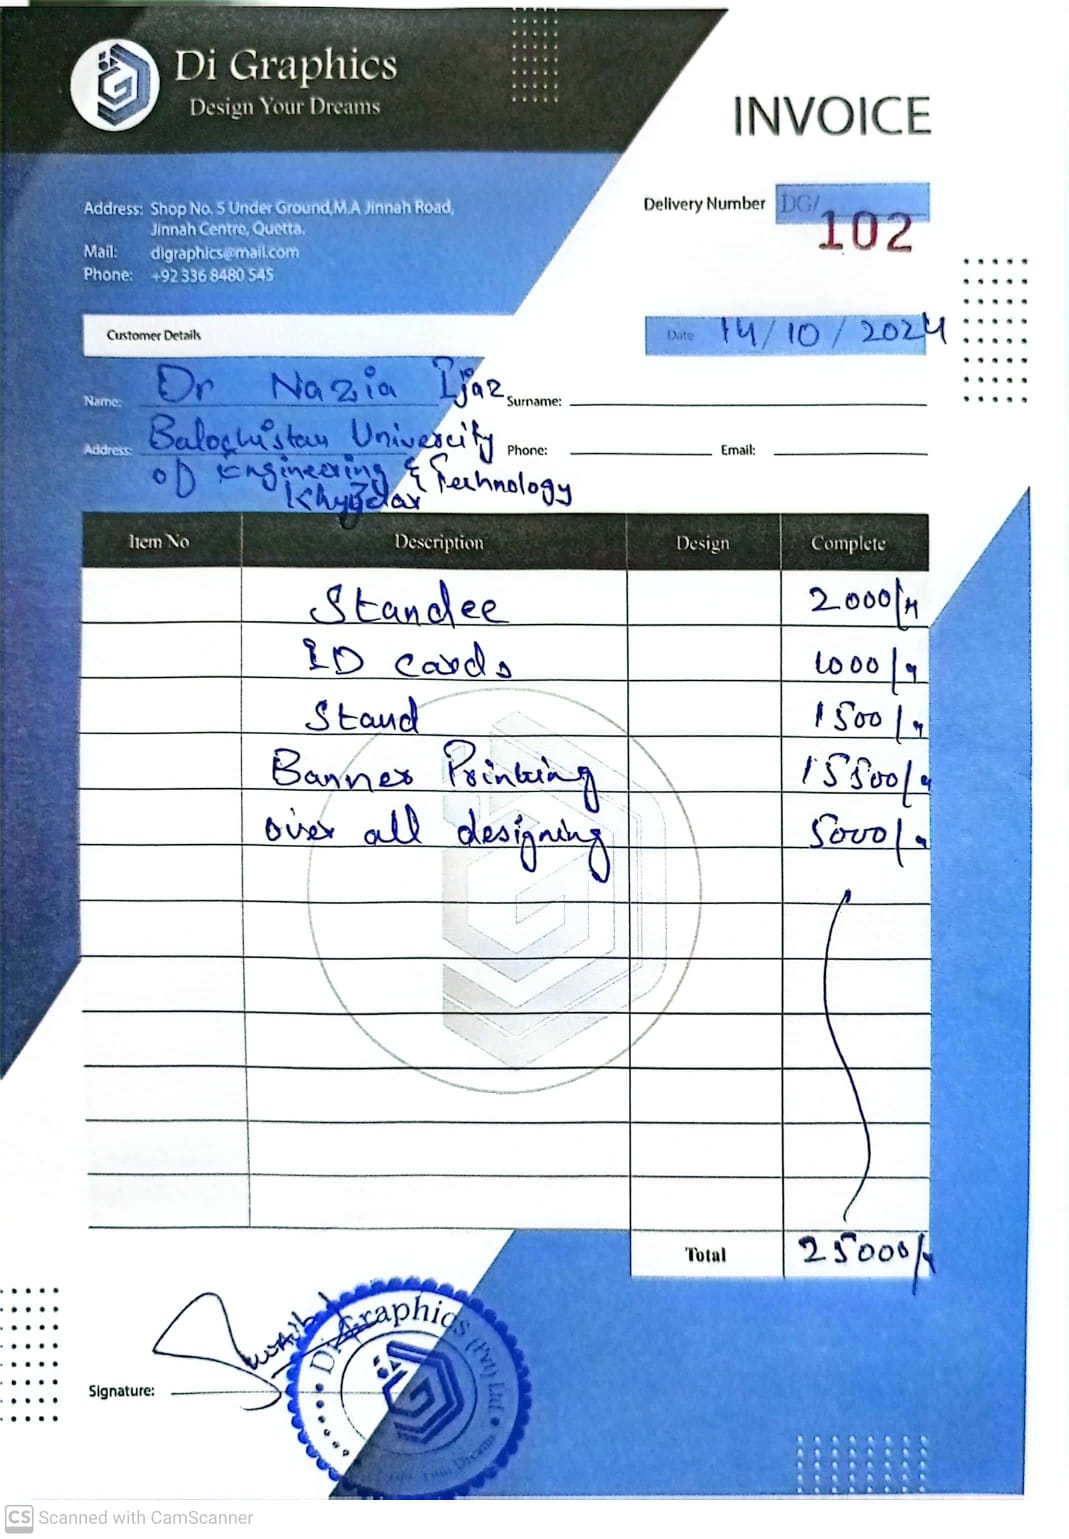 Di Graphics
Design Your Dreams
INVOICE
Address: Shop No. 5 Under Ground,M.A Jinnah Road,
Jinnah Centre, Quetta.
Mail: digraphics@mail.com
Phone: +92 336 8480 545
Delivery Number DG/
102
Customer Details
Date 14/10/2024
Name: Dr Nazia Ijaz Surname:
Address: Balochistan Univercity Phone: Email:
of Engineering & Technology
Khuzdar
Item No Description Design Complete
Standee 2000/-
ID cards 1000/-
Stand 1500/-
Banner Printing 15500/-
over all designing 5000/-
Total 25000/-
Signature:
Di Graphics (Pvt) Ltd.
CS Scanned with CamScanner